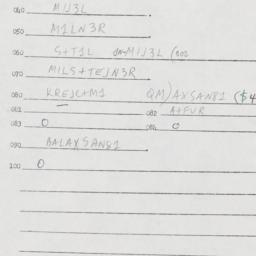 040 MIJ3L
050 M1LN3R
060 S+T1L
070 MILS+TEJN3R
080 KREJC+M1 QM)AXSAN81 ($4
081 082 A+FUR
083 0 084 0
090 BALAXSAN81
100 0